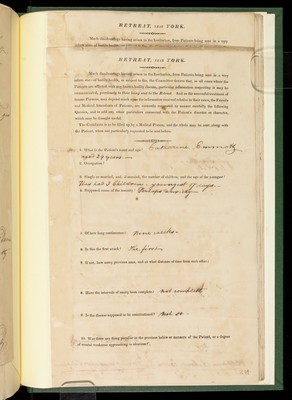 RETREAT, NEAR YORK.
Much disadvantage having arisen to the Institution, from Patients being sent in a very
RETREAT, NEAR YORK.
Much disadvantage having arisen to the Institution, from Patients being sent in a very
infirm state of bodily health, or subject to fits, the Committee desires that, in all cases where the
Patients are affected with any bodily disease, particular information respecting it may be
communicated, previously to their being sent to the Retreat. And as the successful treatment of
Insane Persons, may depend much upon the information received relative to their cases, the Friends
and Medical Attendants of Patients, are earnestly requested to answer carefully the following
Queries, and to add any other particulars connected with the Patient's disorder or character,
which may be thought useful.
The Certificate is to be filled up by a Medical Person, and the whole may be sent along with
the Patient, when not particularly requested to be sent before.
1. What is the Patient's name and age? Catharine
aged 59 years
2. Occupation?
3. Single or married, and, if married, the number of children, and the age of the youngest?
has had 2 Children - youngest 17 years.
4. Supposed cause of the malady? Perhaps anxiety -
5. Of how long continuance? Nine weeks.
6. Is this the first attack? The first
7. If not, how many previous ones, and at what distance of time from each other?
8. Have the intervals of sanity been complete? Not complete
9. Is the disease supposed to be constitutional? Not so -
10. Was there any thing peculiar in the previous habits or manners of the Patient, or a degree
of mental weakness approaching to idiotism?